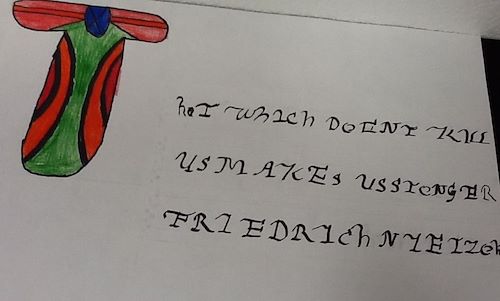 ThaT which DOENT KILL
US MAKES US STONGER
FRIEDRICh NIETZCh